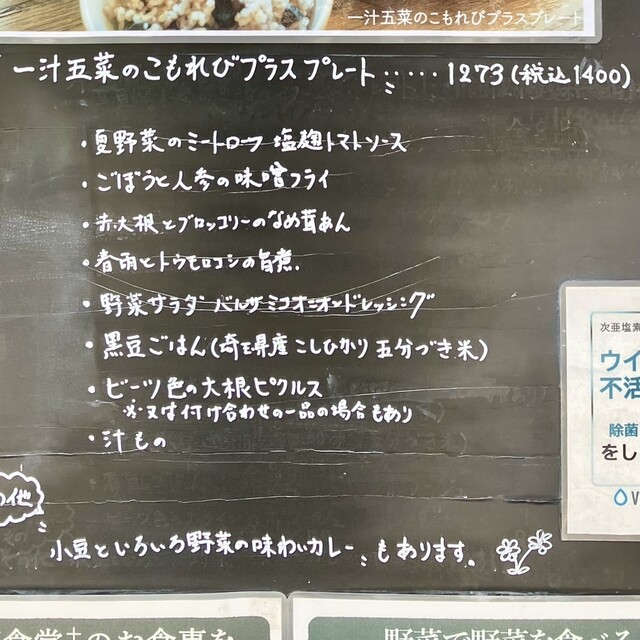 一汁五菜のこもれびプラスプレート
一汁五菜のこもれびプラスプレート‥‥‥1273(税込1400)
・夏野菜のミートローフ 塩麹トマトソース
・ごぼうと人参の味噌フライ
・赤大根とブロッコリーのなめ茸あん
・春雨とトウモロコシの旨煮
・野菜サラダ バルサミコオニオンドレッシング
・黒豆ごはん(埼玉県産こしひかり五分づき米)
・ビーツ色の大根ピクルス
※又は付け合わせの一品の場合もあり
・汁もの
の他
小豆といろいろ野菜の味わいカレーもあります。
次亜塩素
ウイ
不活
除菌
をし
V
食堂+のお食事を
野菜で野菜を食べる